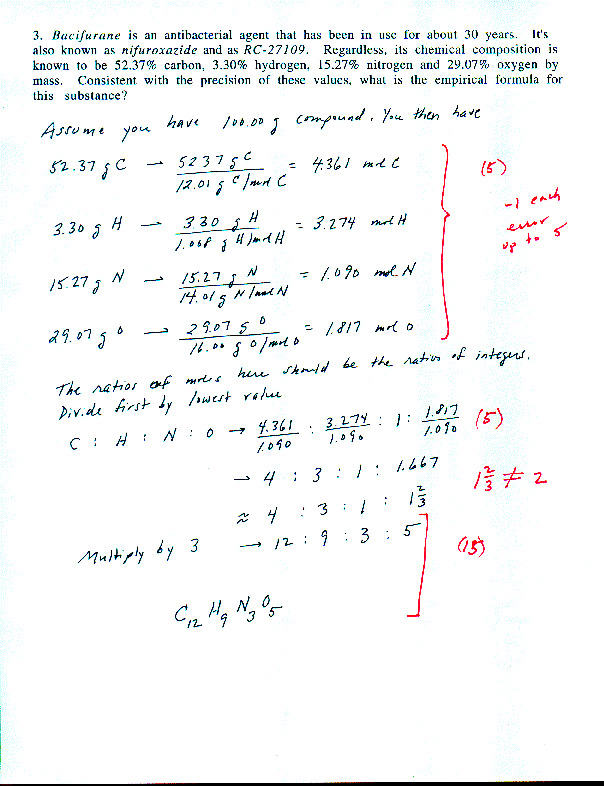 3. Bacifurane is an antibacterial agent that has been in use for about 30 years. It's
also known as nifuroxazide and as RC-27109. Regardless, its chemical composition is
known to be 52.37% carbon, 3.30% hydrogen, 15.27% nitrogen and 29.07% oxygen by
mass. Consistent with the precision of these values, what is the empirical formula for
this substance?
Assume you have 100.00 g compound. You then have
52.37 g C → 52.37 g C / 12.01 g C/mol C = 4.361 mol C (5)
-1 each
error
up to 5
3.30 g H → 3.30 g H / 1.008 g H/mol H = 3.274 mol H
15.27 g N → 15.27 g N / 14.01 g N/mol N = 1.090 mol N
29.07 g O → 29.07 g O / 16.00 g O/mol O = 1.817 mol O
The ratios of moles here should be the ratios of integers.
Divide first by lowest value
C : H : N : O → 4.361/1.090 : 3.274/1.090 : 1 : 1.817/1.090 (5)
→ 4 : 3 : 1 : 1.667
1 2/3 ≠ 2
≈ 4 : 3 : 1 : 1 2/3
Multiply by 3 → 12 : 9 : 3 : 5 (15)
C12 H9 N3 O5